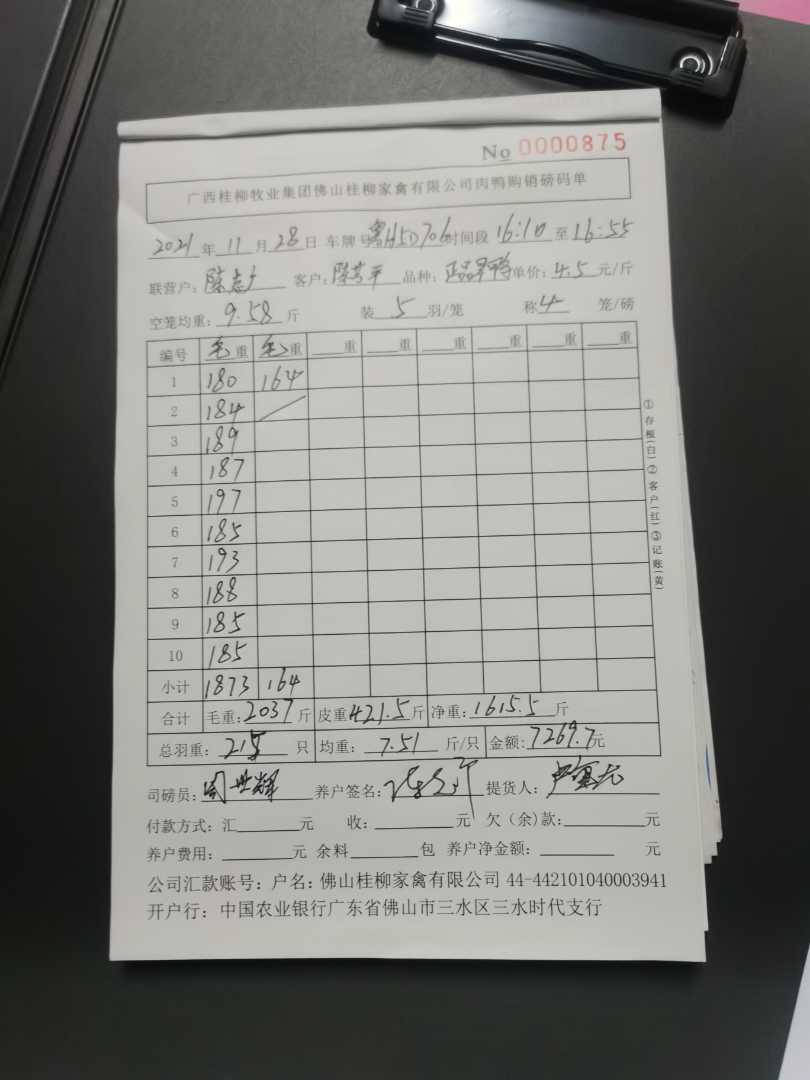 No 0000875
广西桂柳牧业集团佛山桂柳家禽有限公司肉鸭购销磅码单
2021年11月28日 车牌号粤H5D706时间段16:10至16:55
联营户:陈志 客户:陈芳平 品种:正品 单价:4.5元/斤
空笼均重:9.58斤 装5羽/笼 称4笼/磅
编号 毛重 毛重 重 重 重 重 重 重
1 180 164
2 184
3 189
4 187
5 197
6 185
7 193
8 188
9 185
10 185
小计 1873 164
合计 毛重:2037斤 皮重421.5斤 净重:1615.5斤
总羽重:215只 均重:7.51斤/只 金额:7269.7元
司磅员:周世辉 养户签名: 提货人:
付款方式:汇 元 收: 元 欠(余)款: 元
养户费用: 元 余料 包 养户净金额: 元
公司汇款账号:户名:佛山桂柳家禽有限公司 44-442101040003941
开户行:中国农业银行广东省佛山市三水区三水时代支行
①存根(白)②客户(红)③记账(黄)